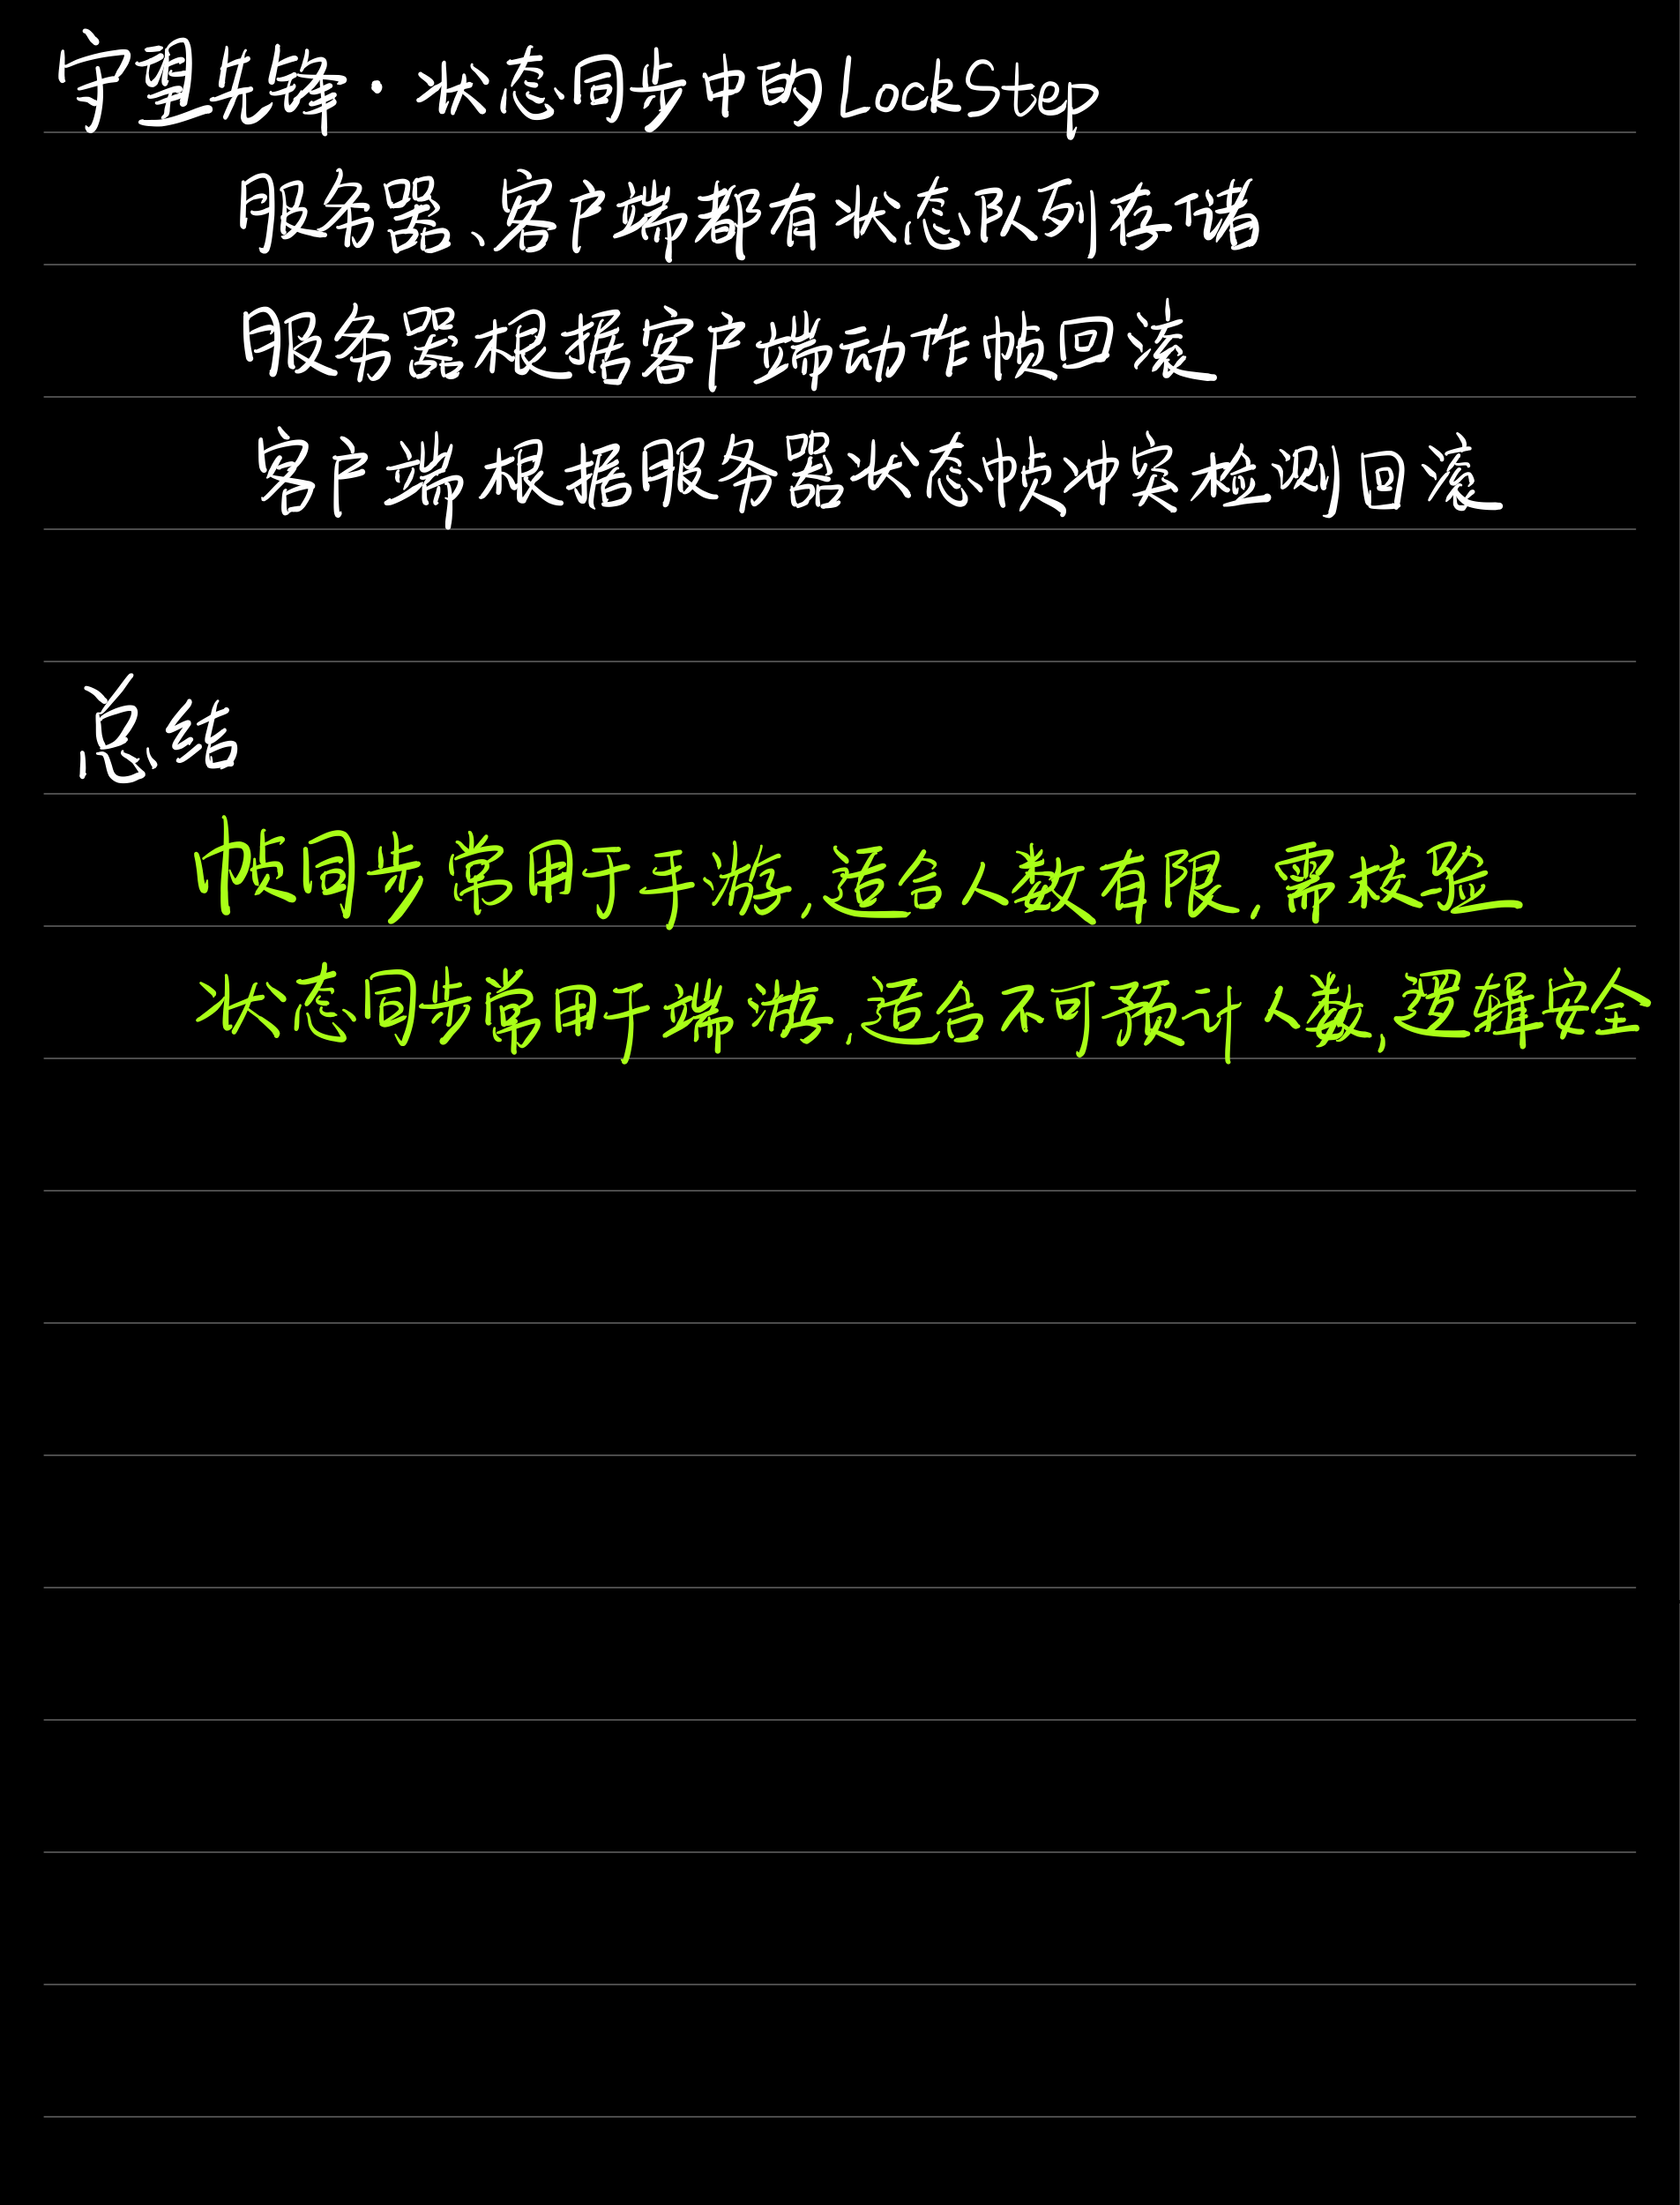 守望先锋·状态同步中的LockStep
服务器、客户端都有状态队列存储
服务器根据客户端动作帧回滚
客户端根据服务器状态帧冲突检测回滚
总结
帧同步常用于手游,适合人数有限,需核验
状态同步常用于端游,适合不可预计人数,逻辑安全